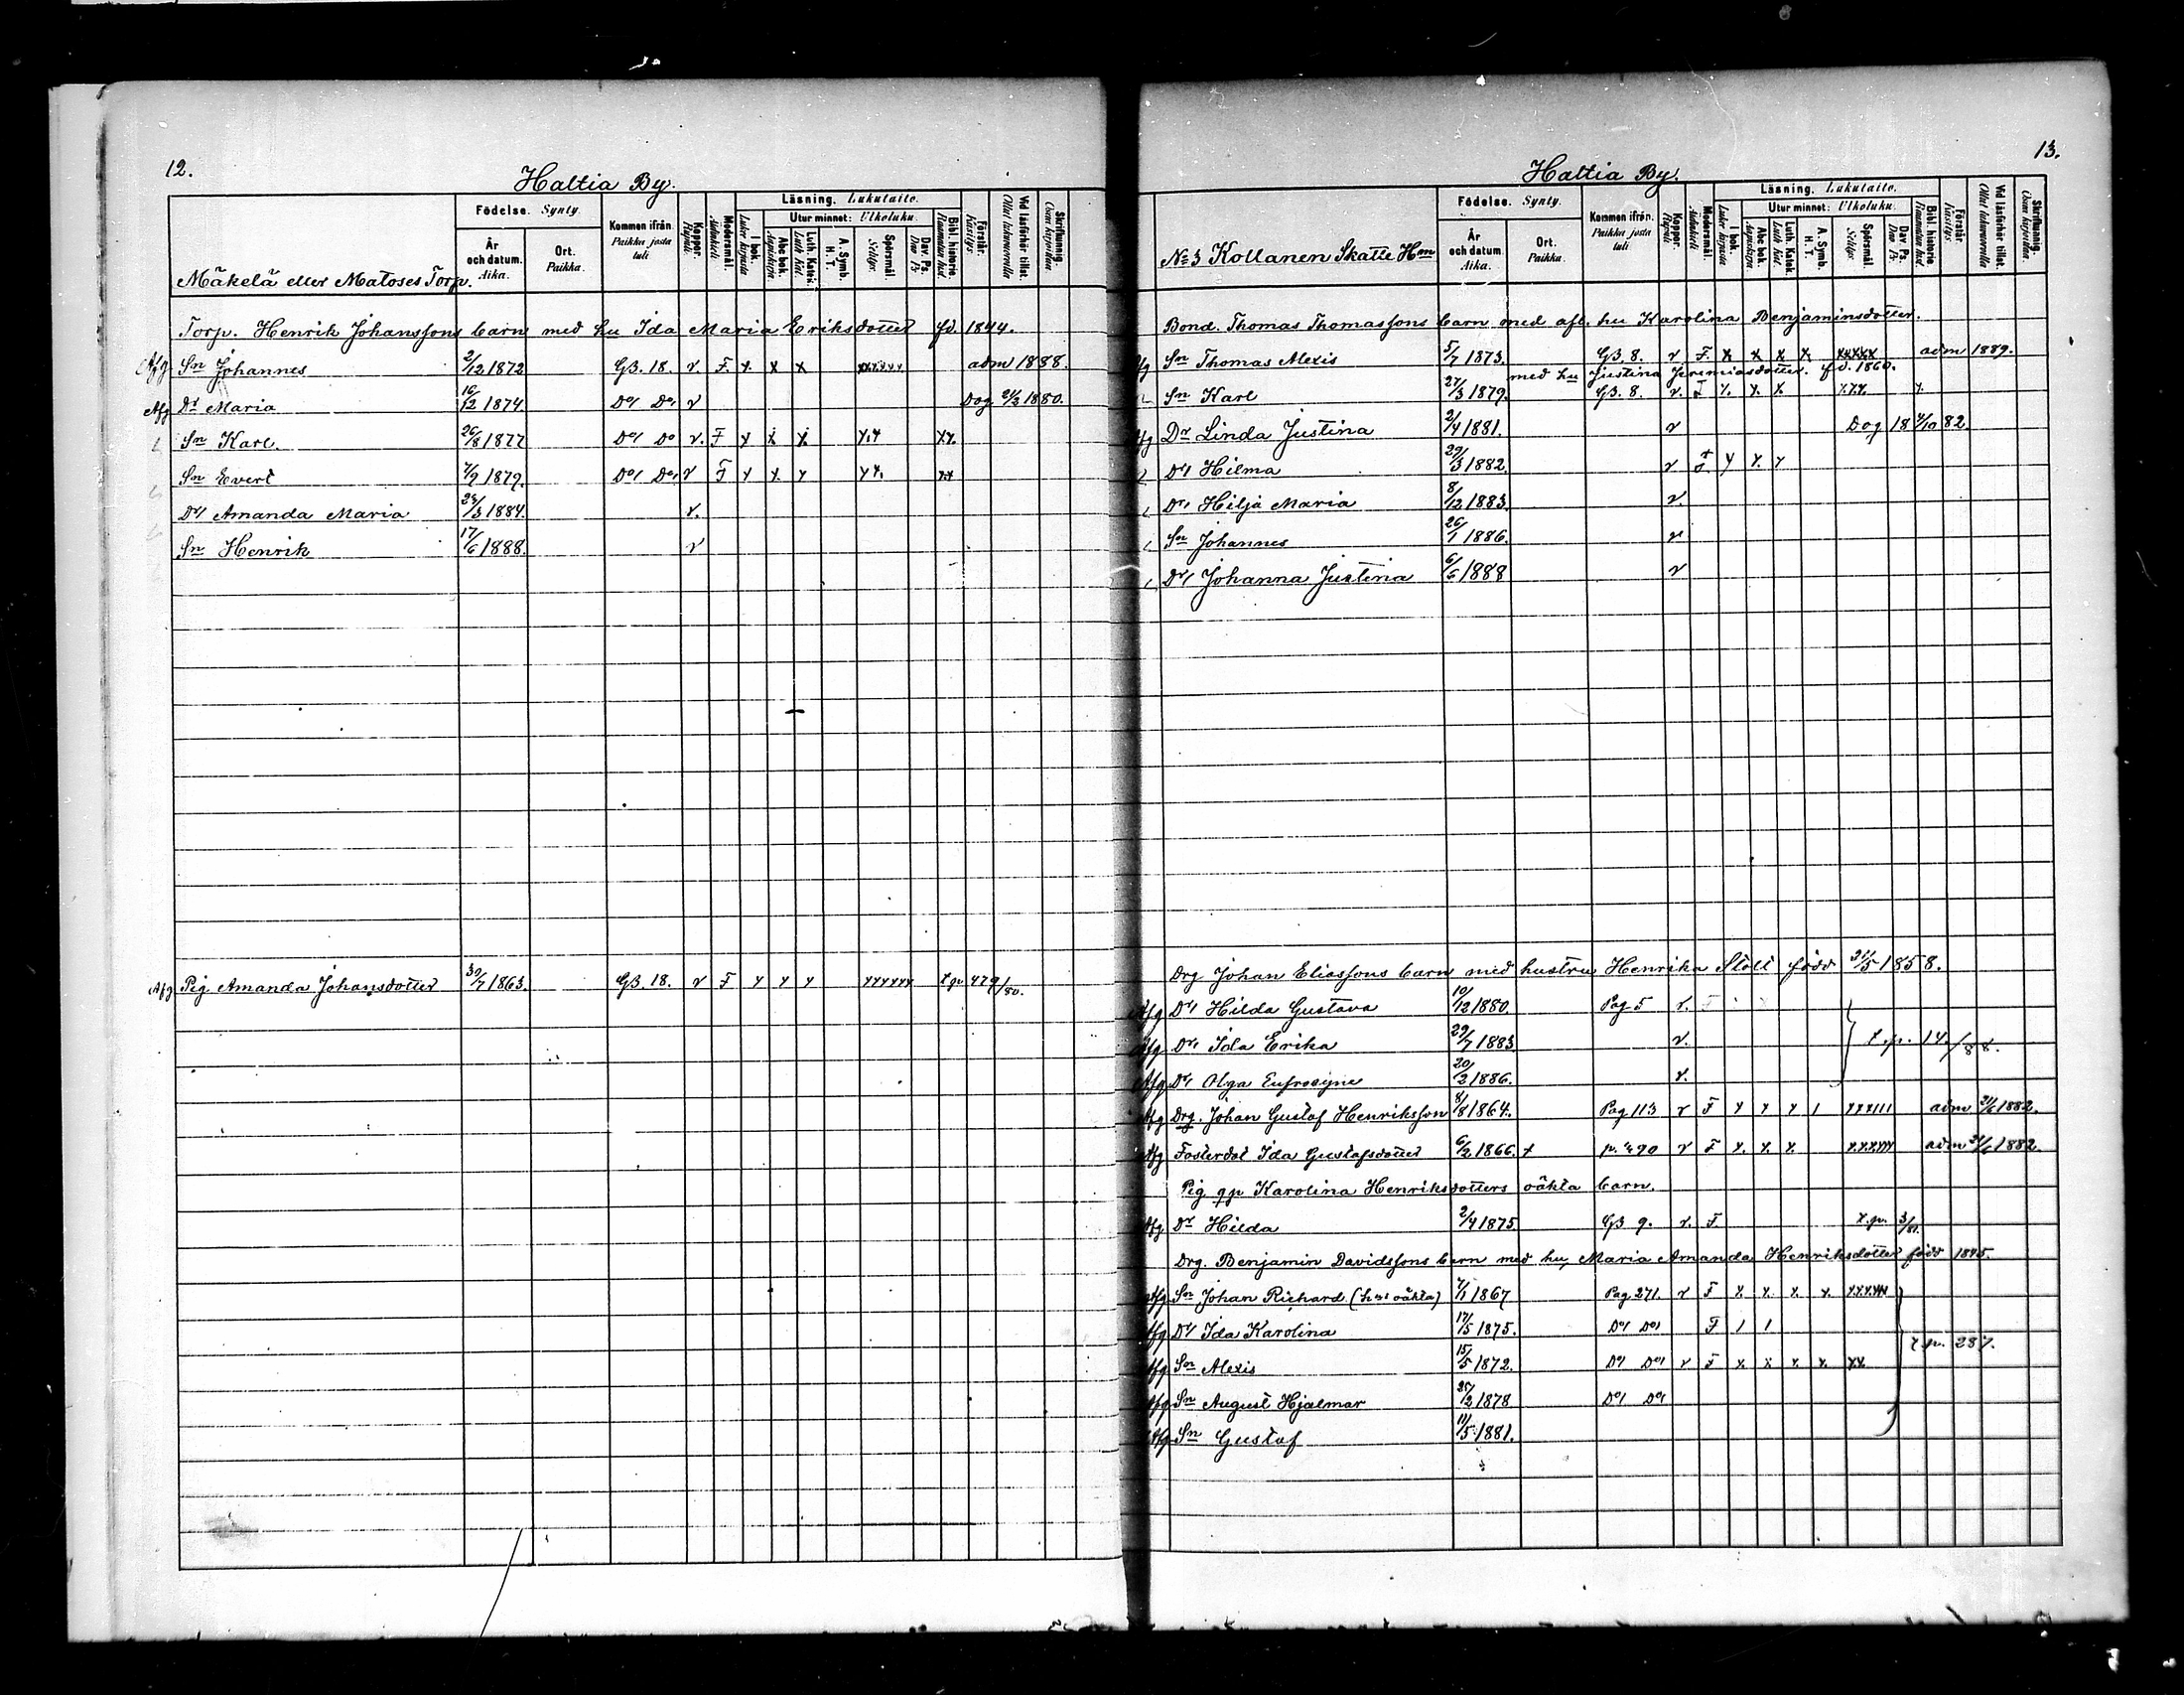 12.
Haltia By.
Mäkelä eller Matoses Torp.
Födelse. Synty.
År och datum. Aika.
Ort. Paikka.
Kommen ifrån. Paikka josta tuli
Koppor. Rupuli.
Modersmål. Äidinkieli
Läsning. Lukutaito.
I bok. Lukee kirjasta
Utur minnet: Ulkoluku.
Abc bok. Aapiskirja.
Luth. Katek. Luth Kat.
A. Symb. H. T.
Spörsmål Selitys.
Dav. Ps. Dav Ps
Bibl. historie Raamatun hist.
Förstår. Käsitys.
Vid läsförhör tillst. Ollut lukuvuorolla
Skrifkunnig. Osaa kirjoittaa
Torp. Henrik Johanssons barn med hu Ida Maria Eriksdotter fd. 1844.
Afg Sn Johannes 2/12 1872 GB. 18. v. F. x. x x xxxxxx adm 1888.
Afg Dr Maria 16/12 1874 Do Do v Dog 21/2 1880.
Sn Karl. 26/8 1877 Do Do v. F x x x. x.x xx.
Sn Evert 7/9 1879. Do Do v F x x. x xx. xx
Dr Amanda Maria 23/3 1884. v.
Sn Henrik 17/6 1888. v
Afg Pig Amanda Johansdotter 30/7 1863. GB. 18. v F x x x xxxxxx t.p. 479/80.
13.
Haltia By.
No 3 Kollanen Skatte Hmn
Födelse. Synty.
År och datum. Aika.
Ort. Paikka.
Kommen ifrån. Paikka josta tuli
Koppor. Rupuli.
Modersmål. Äidinkieli
Läsning. Lukutaito.
I bok. Lukee kirjasta
Utur minnet: Ulkoluku.
Abc bok. Aapiskirja.
Luth. Katek. Luth Kat.
A. Symb. H. T.
Spörsmål. Selitys
Dav. Ps. Dav Ps
Bibl. historie Raamatun hist.
Förstår. Käsitys
Vid läsförhör tillst. Ollut lukuvuorolla
Skrifkunnig. Osaa kirjoittaa
Bond. Thomas Thomassons barn med afl. hu Karolina Benjaminsdotter.
Afg Sn Thomas Alexis 5/7 1873. GB. 8. v F. x x x x. xxxxx adm 1889.
med hu Justina Jeremiasdotter. fd. 1860.
Sn Karl 27/3 1879. GB. 8. v. F x. x. x x.x.x. x.
Afg Dr Linda Justina 2/4 1881. v Dog 18 4/10 82.
Dr Hilma 29/3 1882. v x x. x
Dr Hilja Maria 8/12 1883. v.
Sn Johannes 26/1 1886. v
Dr Johanna Justina 6/6 1888 v
Drg Johan Eliassons barn med hustru Henrika Stolt född 21/5 1858.
Afg Dr Hilda Gustava 10/12 1880. Pag 5 v. F
Afg Dr Ida Erika 29/7 1883. v. t.p. 14./88.
Afg Dr Olga Eufrosyne 20/2 1886. v.
Afg Drg. Johan Gustaf Henriksson 8/8 1864. Pag 113 v F x x x 1 xxx111 adm 21/6 1882.
Afg Fosterdot Ida Gustafsdotter 6/2 1866. x v F x. x. x. adm 21/6 1882.
Pig gp Karolina Henriksdotters oäkta barn.
Afg Dr Hilda 2/4 1875 GB 9. v. F t.p. 3/81.
Drg. Benjamin Davidssons barn med hu, Maria Amanda Henriksdotter född 1845
Afg Sn Johan Richard (hus oäkta) 7/1 1867 Pag 271. v F x x. x. x.
Afg Dr Ida Karolina 17/5 1875. Do Do F 1 1
Afg Sn Alexis 15/5 1872. Do Do v F x. x x. x. xx t.p. 287.
Afg Sn August Hjalmar 25/2 1878 Do Do
Afg Sn Gustaf 11/5 1881.